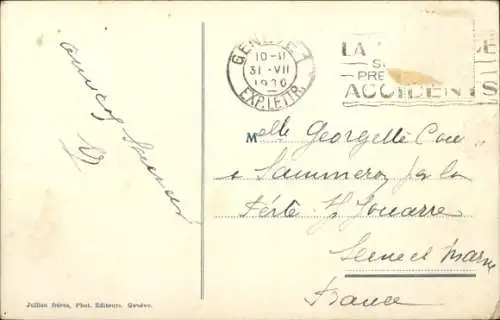 GENÈVE 1
10-II
31·VII
1930
EXP. LETTR.
LA
PRE
ACCIDENTS
amicales
Melle Georgette Cou
à Sammeron par la
Ferté s/ Jouarre
Seine et Marne
France
Jullien frères, Phot. Editeurs. Genève.